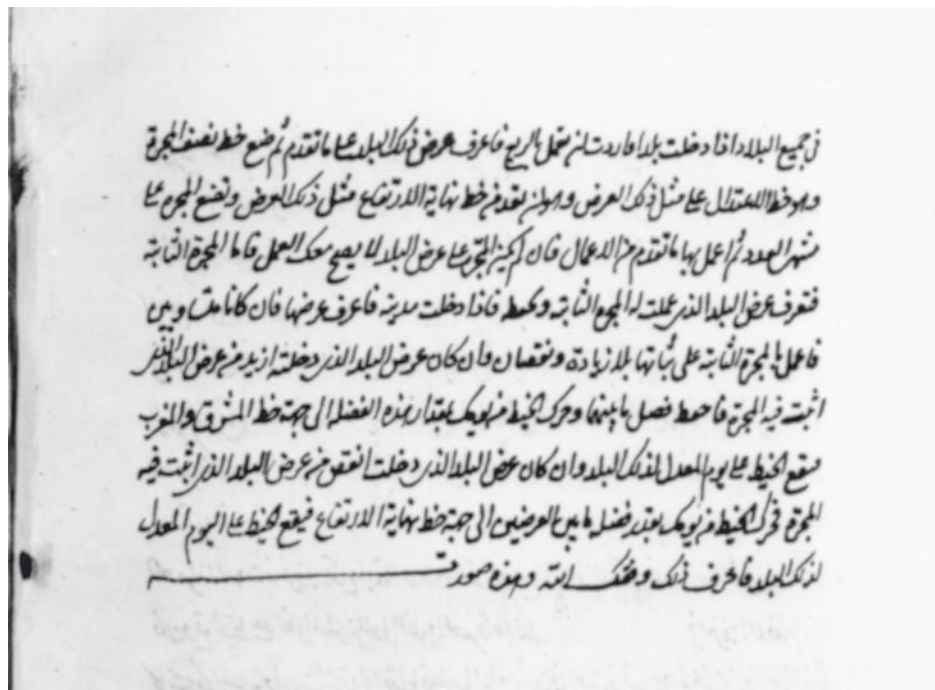 في جميع البلاد اذا دخلت بلدا فاردت ان تعمل بالربع فاعرف عرض ذلك البلد على ما تقدم ثم ضع خط نصف المجرة
وهو خط الاعتدال على مثل ذلك العرض وهو ان تعد من خط نهاية الارتفاع مثل ذلك العرض وتضع المجرة على
منتهى العدد ثم اعمل بها ما تقدم من الاعمال فان لم يكن المجرة على عرض البلد لا يصح معك العمل فاما المجرة الثابتة
فتعرف عرض البلد الذي عملت له المجرة الثابتة وتحفظه فاذا دخلت مدينة فاعرف عرضها فان كانا متساويين
فاعمل بالمجرة الثابتة على ثباتها بلا زيادة ونقصان وان كان عرض البلد الذي دخلته ازيد من عرض البلد الذي
اثبت فيه المجرة فاحفظ فضل ما بينهما وحرك الخيط من يومك بمقدار هذه الفضلة الى جهة خط المشرق والمغرب
فيقع الخيط على يوم المعدل لذلك البلد وان كان عرض البلد الذي دخلت انقص من عرض البلد الذي اثبت فيه
المجرة فحرك الخيط من يومك بقدر فضل ما بين العرضين الى جهة خط نهاية الارتفاع فيقع الخيط على اليوم المعدل
لذلك البلد فاعرف ذلك وفقك الله وهذه صورته